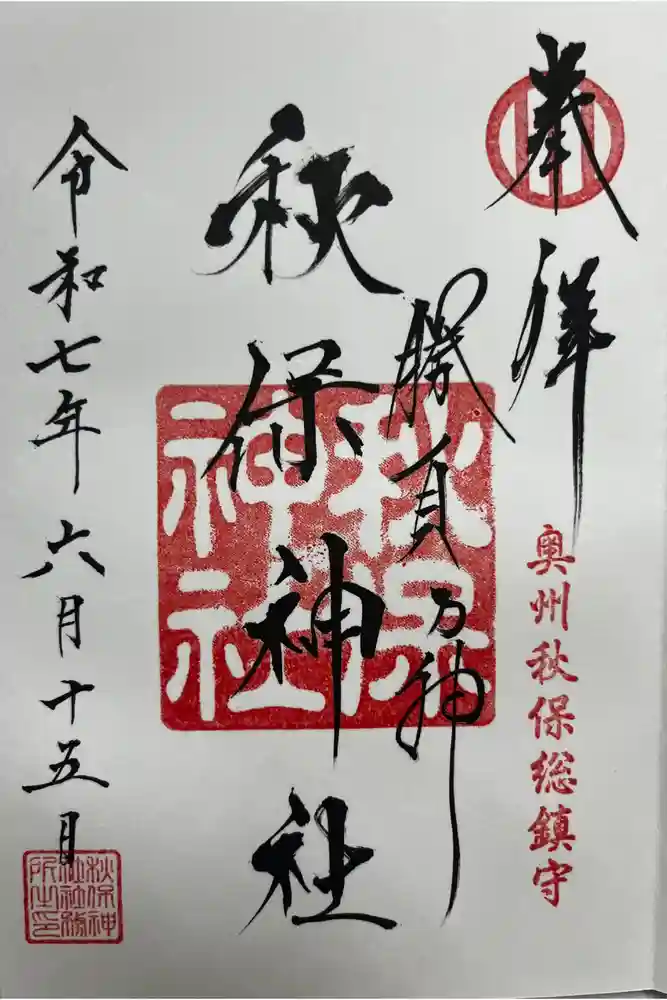 奉拝
奥州秋保総鎮守
勝負の神
秋保神社
秋保神社
令和七年六月十五日
秋保神
社社務
所之印